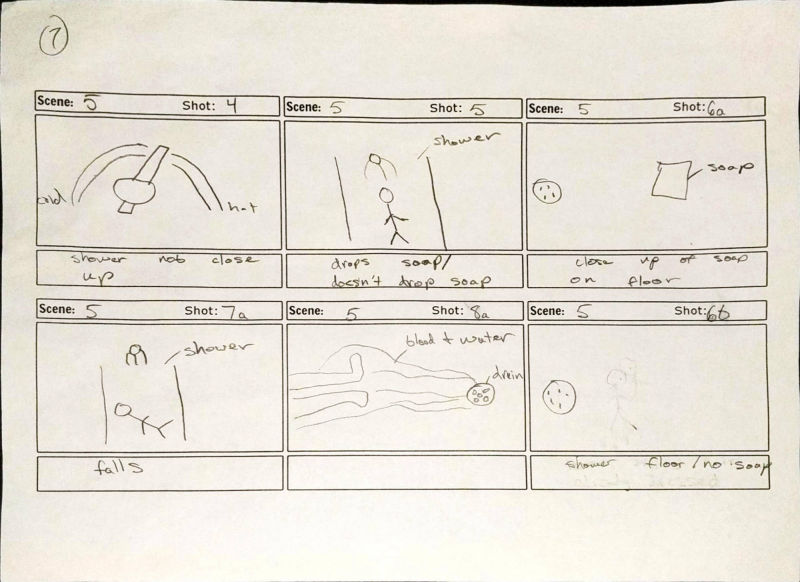 7
Scene: 5 Shot: 4
cold
hot
shower not close
up
Scene: 5 Shot: 5
shower
drops soap/
doesn't drop soap
Scene: 5 Shot: 6a
soap
close up of soap
on floor
Scene: 5 Shot: 7a
shower
falls
Scene: 5 Shot: 8a
blood + water
drain
Scene: 5 Shot: 6b
shower floor/no soap